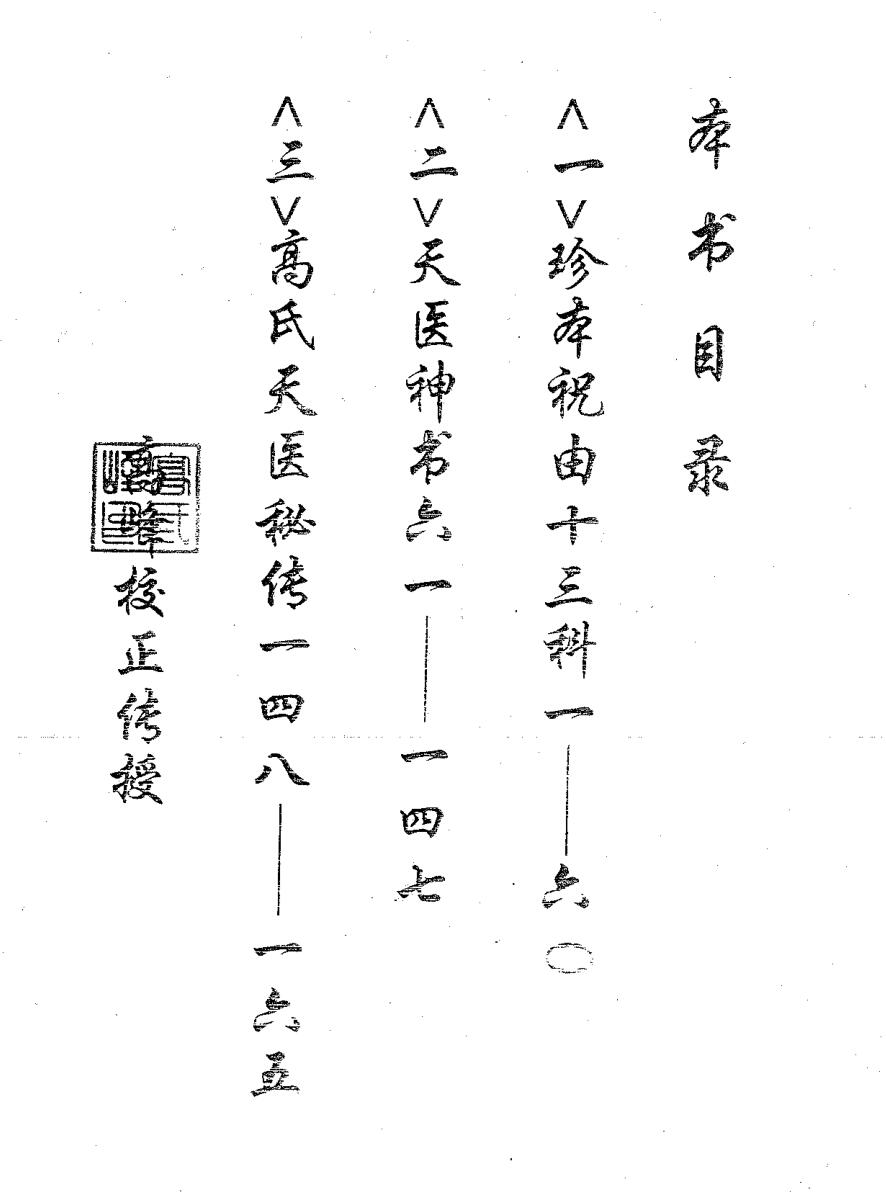 本书目录
＜一＞珍本祝由十三科一——六〇
＜二＞天医神书六一——一四七
＜三＞高氏天医秘传一四八——一六五
高峰校正传授